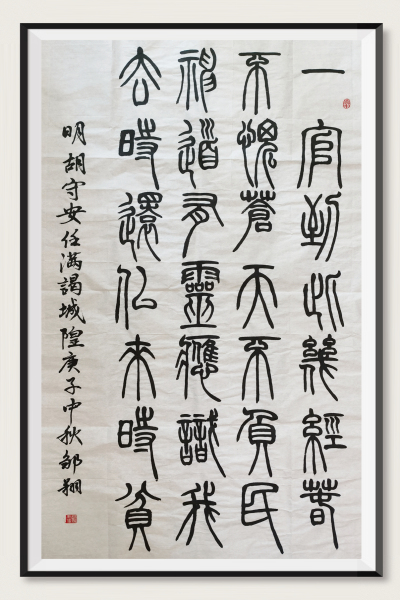 一官到此幾經春
不愧蒼天不負民
神道有靈應識我
去時還似來時貧
明胡守安任滿謁城隍庚子中秋鄒翔